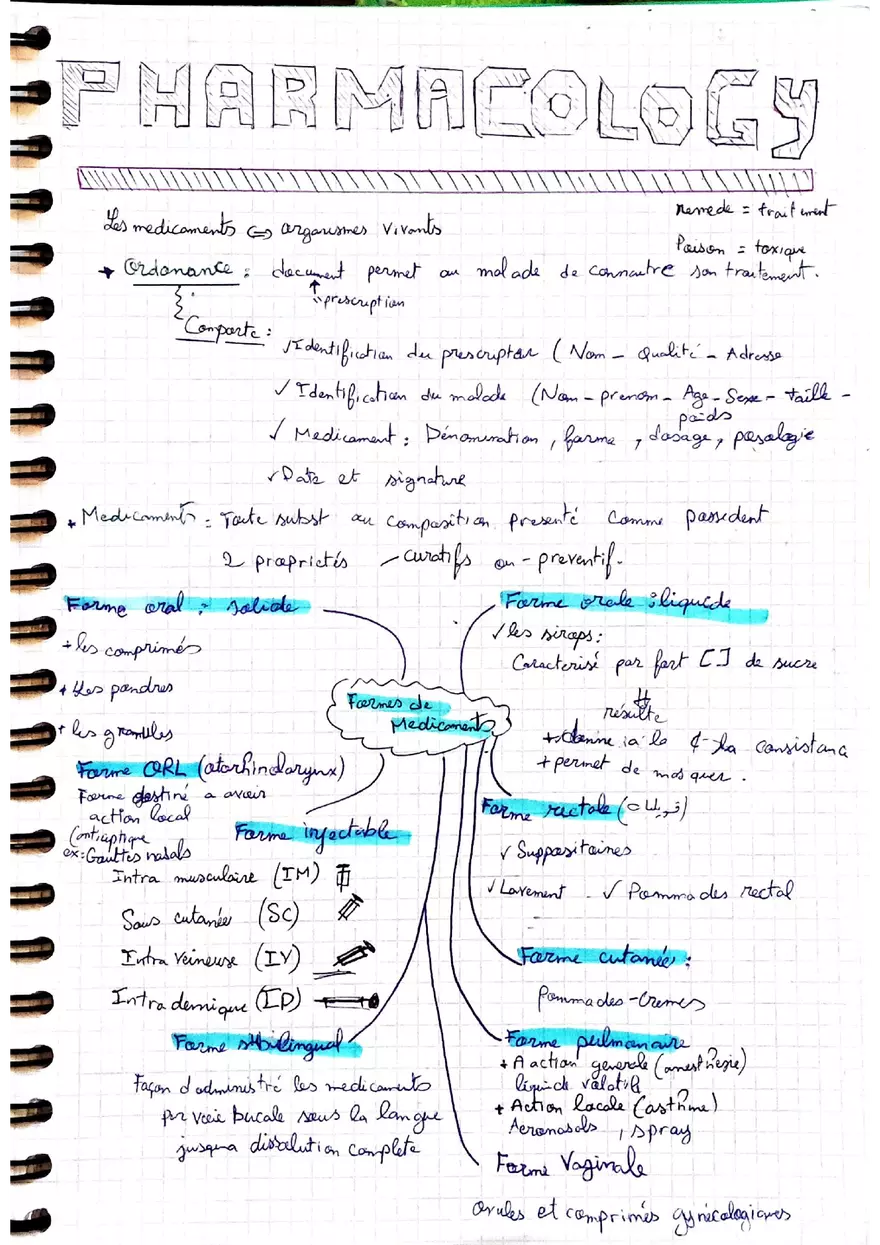 PHARMACOLOGY
remede = traitement
Les medicaments <=> organismes vivants
Poison = toxique
Ordonance : document permet au malade de connautre son traitement.
prescription
Comporte :
✓ Identification du prescripteur ( Nom - Qualité - Adresse
✓ Identification du malade (Nom - prenom - Age - Sexe - taille -
poids
✓ Medicament : Dénomination, forme, dosage, posologie
✓ Date et signature
+ Medicaments = Toute subst ou composition presenté comme possedent
2 propriétés - curatifs ou - preventif.
Forme oral : solide
+ les comprimés
+ les poudres
+ les granules
Forme orale : liquide
✓ les sirops :
Caracterisé par fort [ ] de sucre
résulte
la consistance
+ permet de masquer.
Formes de
Medicaments
Forme ORL (otorhinolarynx)
Forme destiné a avoir
action local
(antiseptique
ex: Gouttes nasals
Forme injectable
Intra musculaire (IM)
Sous cutanée (SC)
Intra veineuse (IV)
Intra dermique (ID)
Forme rectale (تحميلات)
✓ Suppositoires
✓ Lavement ✓ Pommades rectal
Forme cutanée :
Pommades - Cremes
Forme sublingual
Façon d'administré les medicaments
par voie bucale sous la langue
jusqua dissolution complete
Forme pulmonaire
+ A action generale (anesthésie)
liquide volatil
+ Action locale (asthme)
Aeronosols, spray
Forme Vaginale
ovules et comprimés gynécologiques